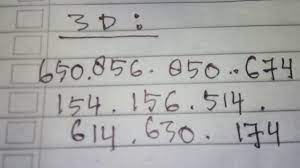 3D:
650.856.850..674
154.156.514.
614.630.174